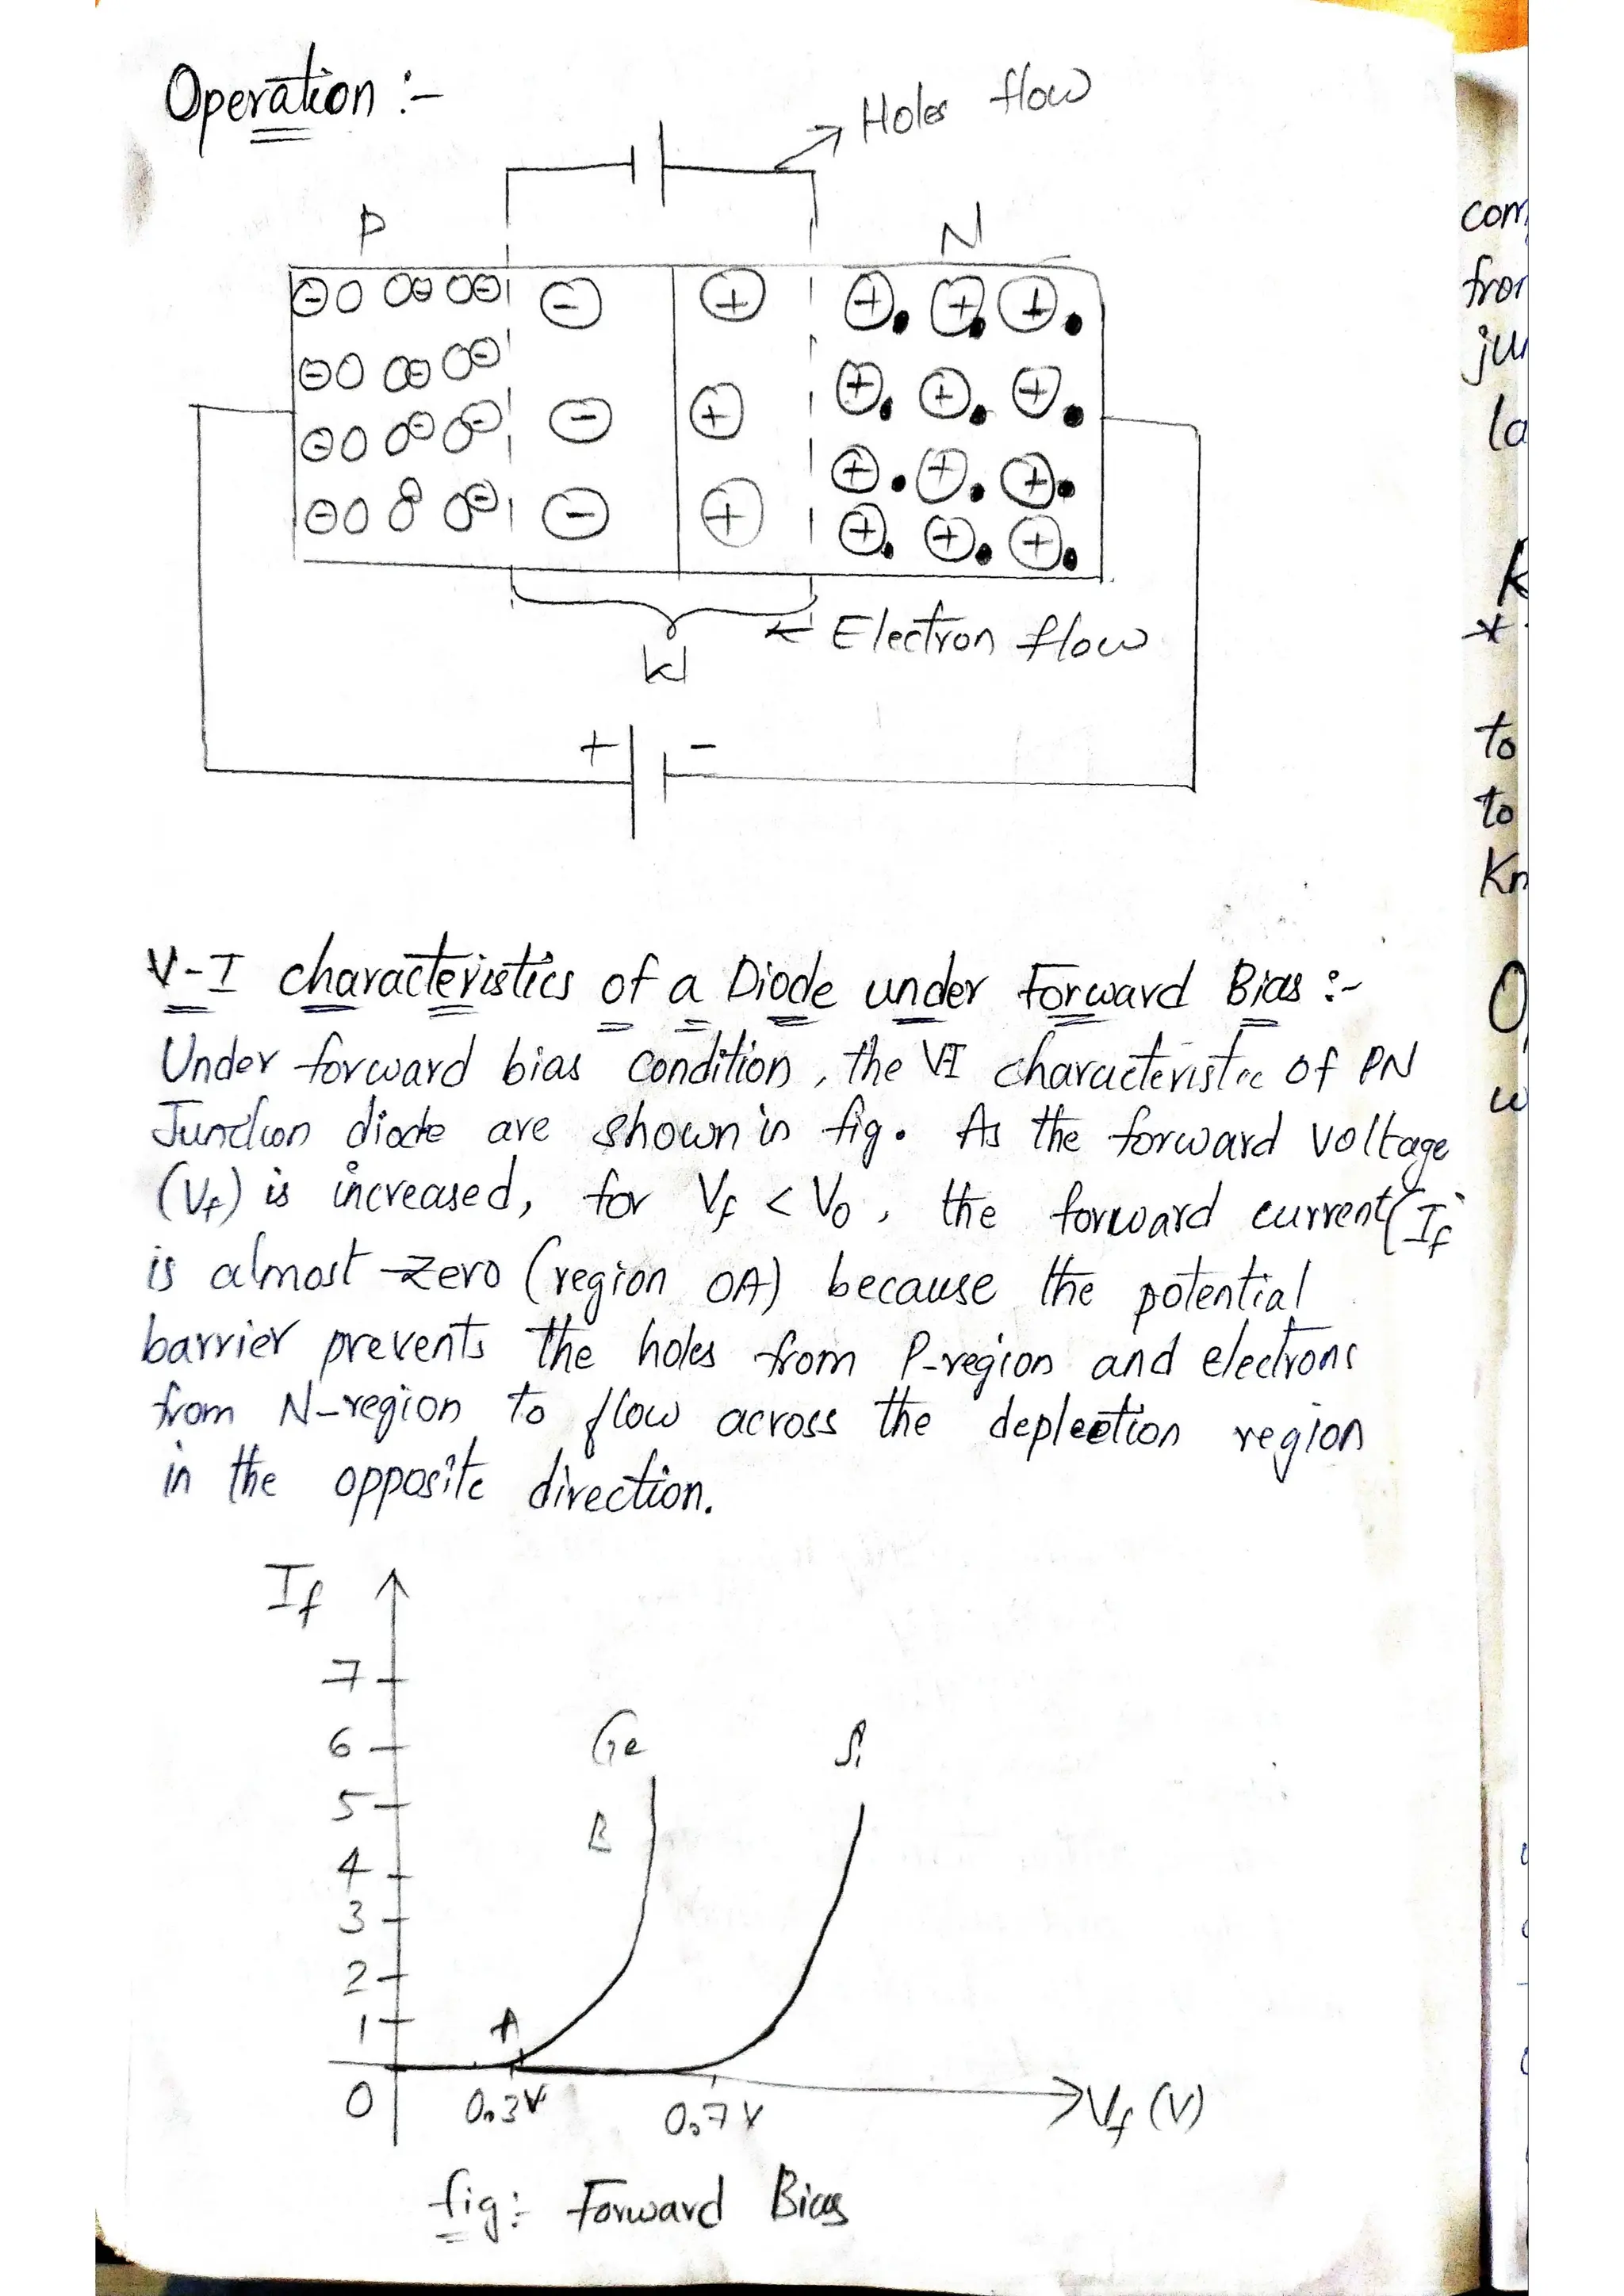 Operation :-
Holes flow
P
N
Electron flow
W
+ -
V-I characteristics of a Diode under Forward Bias :-
Under forward bias condition, the VI characteristic of PN
Junction diode are shown in fig. As the forward voltage
(Vf) is increased, for Vf < Vo, the forward current (If
is almost zero (region OA) because the potential
barrier prevents the holes from P-region and electrons
from N-region to flow across the depleetion region
in the opposite direction.
If
7
6
Ge
Si
5
B
4
3
2
1
A
0
0.3V
0.7V
Vf (V)
fig:- Forward Bias
com
from
la
*
to
to
Kn
O
w